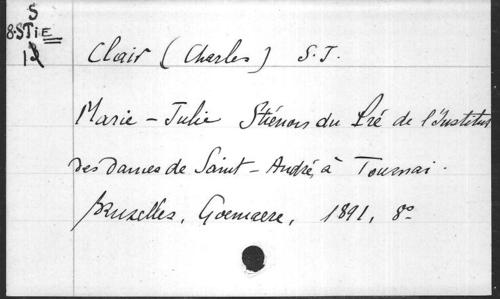 S
8.STIE
Clair (Charles) S.J.
Marie-Julie Stiénon du Pré de l'Institut
des Dames de Saint-André, à Tournai.
Bruxelles, Goemaere, 1891, 8°